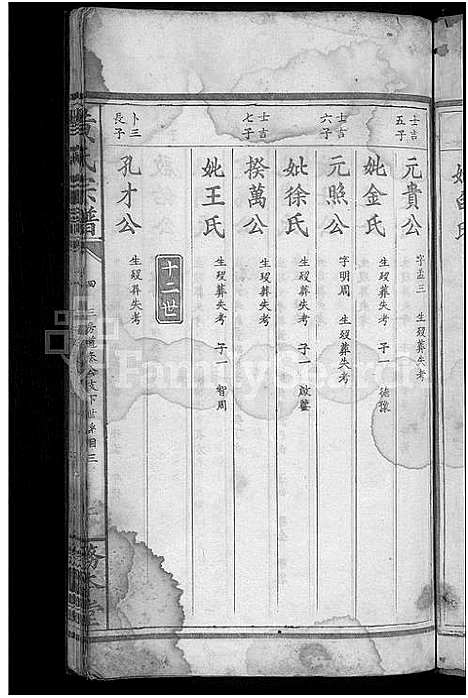 士吉
五子
元貴公
字孟三 生殁葬失考
妣金氏
生殁葬失考 子一 德豫
士吉
六子
元照公
字明周 生殁葬失考
妣徐氏
生殁葬失考 子一 啟鑒
士吉
七子
揆萬公
生殁葬失考
妣王氏
生殁葬失考 子一 智周
十二世
卜三
長子
孔才公
生殁葬失考
黄氏宗譜
四
三房道泰公支下世系圖三
務本堂
FamilySearch